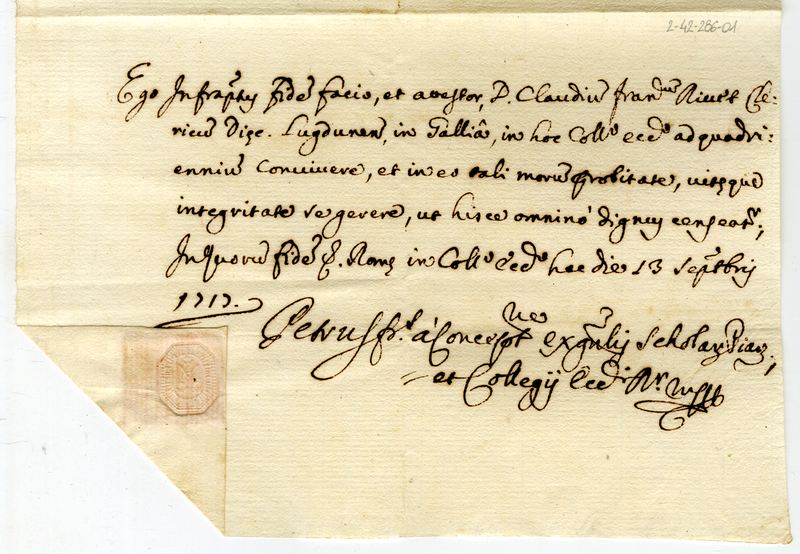 2-42-286-01
Ego Infra͂ptus fide͂ facio, et attestor, D. Claudiu͂ Fran.cum Rivet Cle:
ricu͂ Diȩc. Lugdunen͂, in Galliâ, in hoc Coll.o eccl.o ad quadri:
enniu͂ Convivere, et in eo tali moru͂ probitate, vitȩque
integritate se gerere, ut hisce omninò dignus censeat.r;
In quoru͂ fide͂ &. Romȩ in Coll.o Eccl.o hac die 13 Sept͂bris
1717.
Petrus fr. à Concept.ne ex gn͂lis Scholar. Piar.,
et Collegij Eccl.i Rr mpp